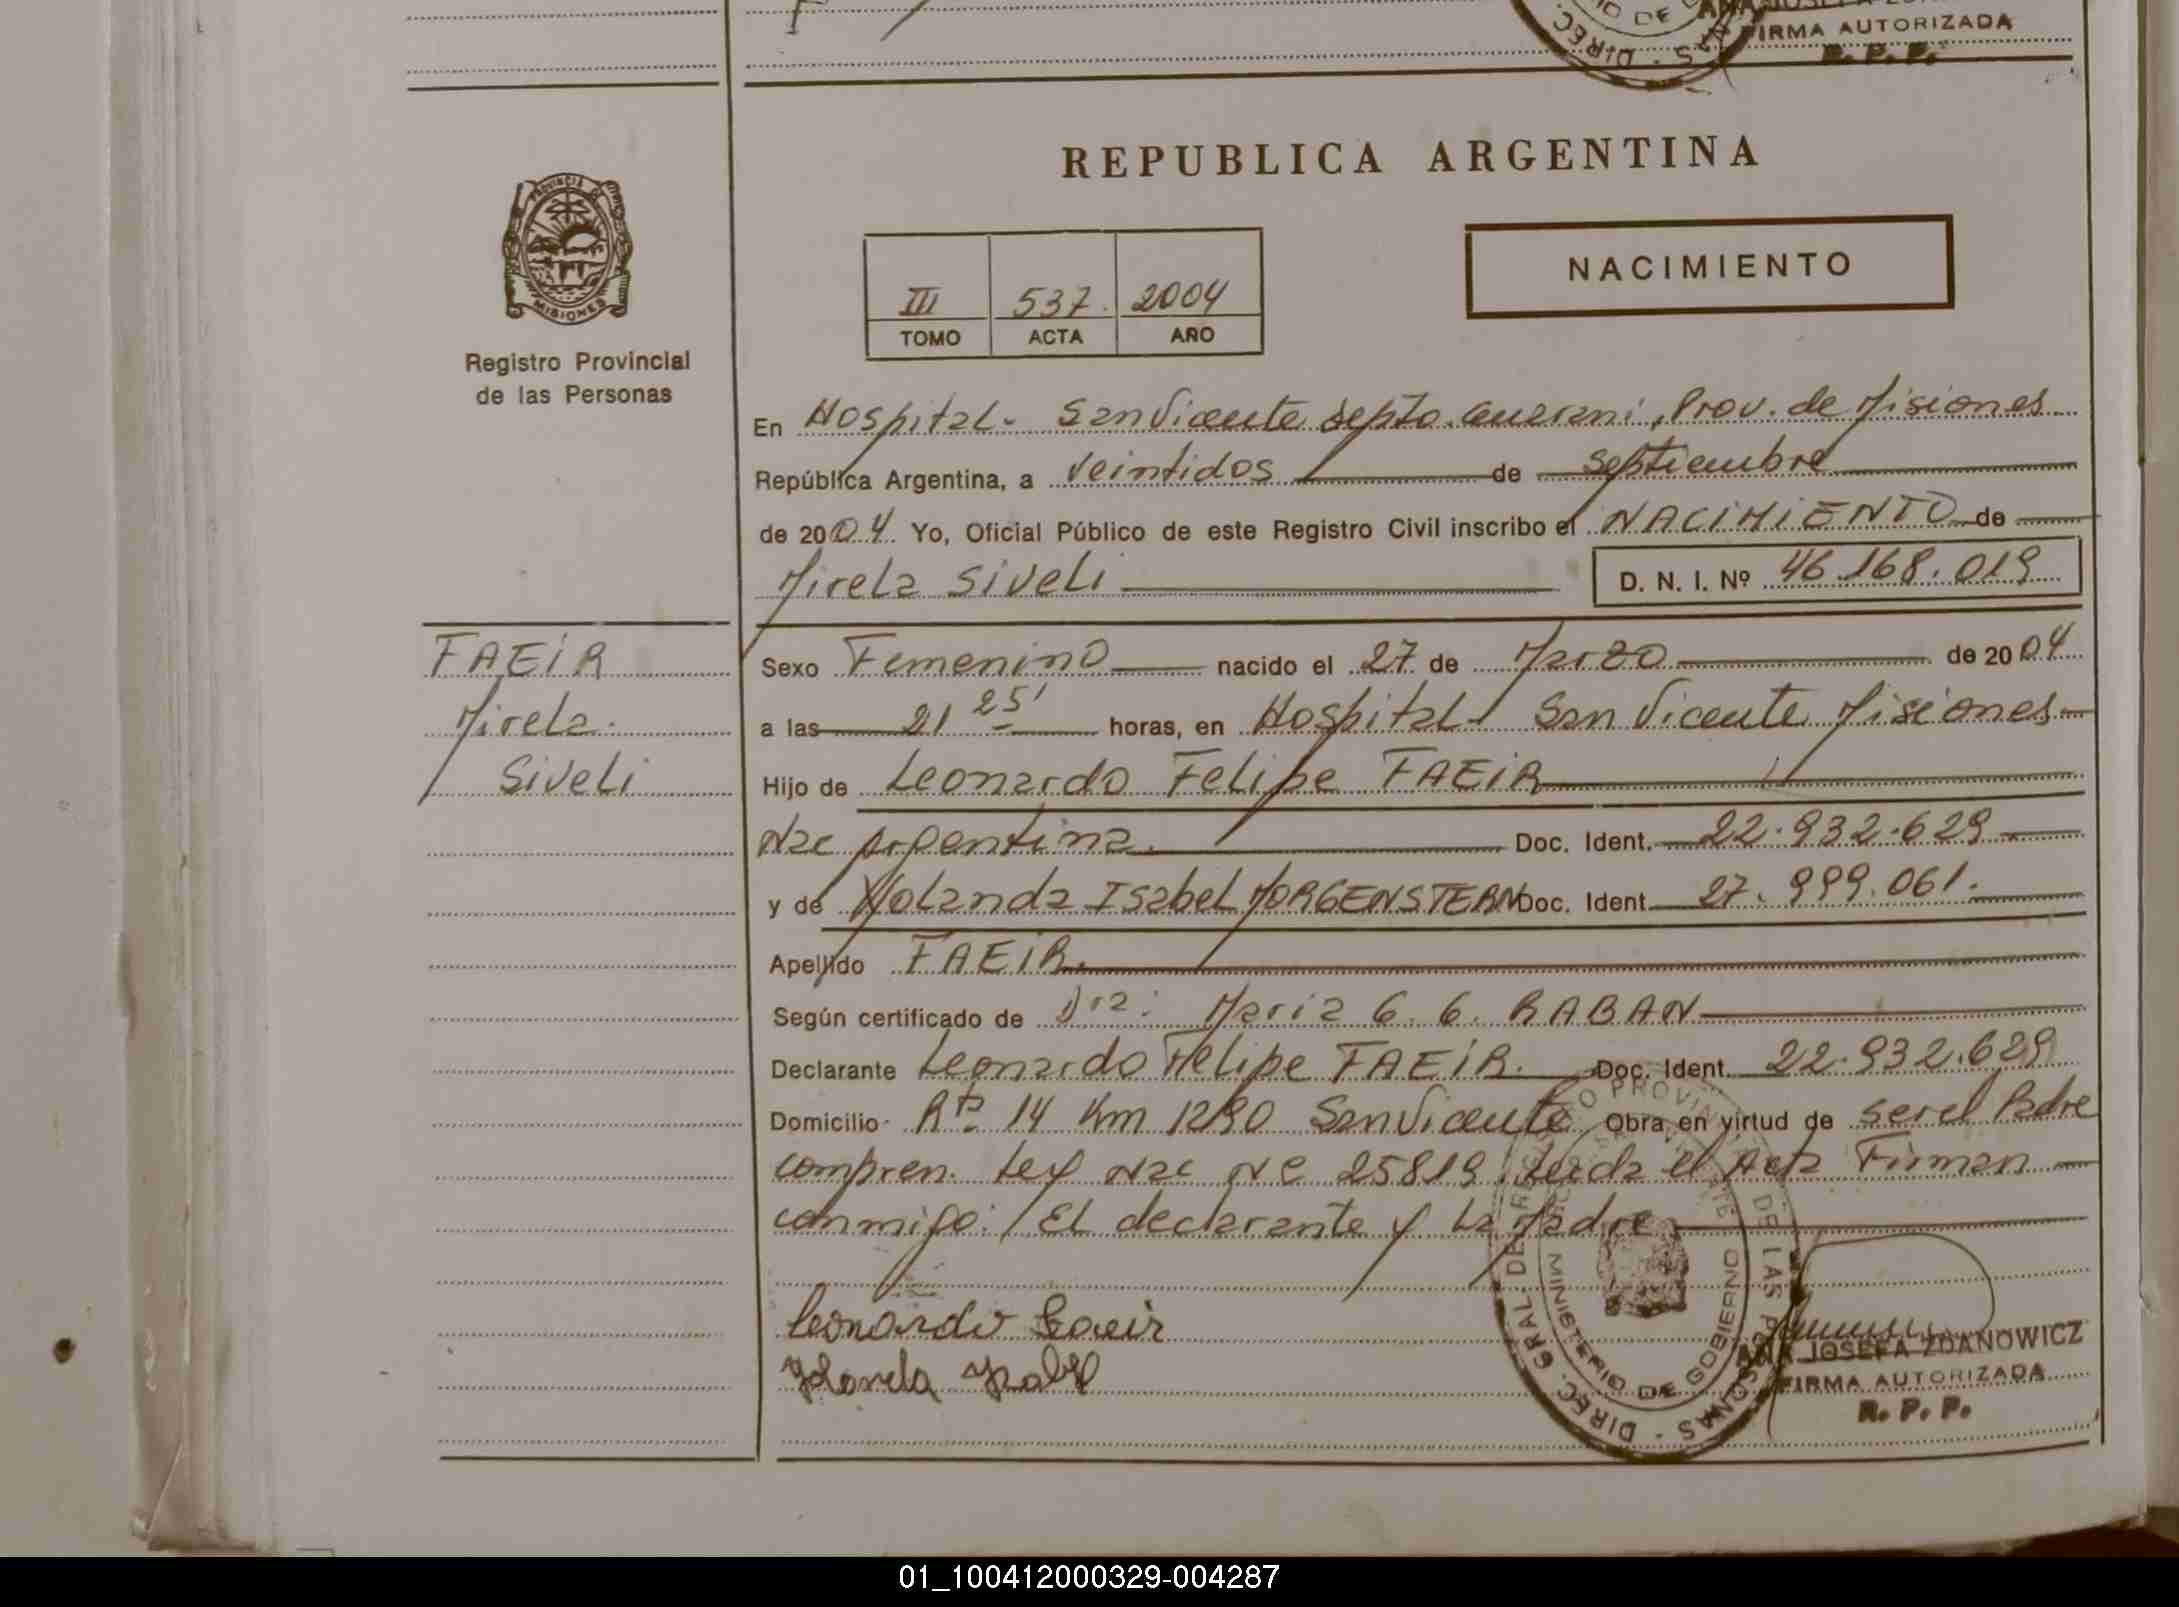 FIRMA AUTORIZADA
R. P. P.
REPUBLICA ARGENTINA
NACIMIENTO
PROVINCIA DE
MISIONES
Registro Provincial
de las Personas
III 537. 2004
TOMO ACTA AÑO
En Hospital- San Vicente Depto. Guarani, Prov. de Misiones
República Argentina, a veintidos de septiembre
de 2004 Yo, Oficial Público de este Registro Civil inscribo el NACIMIENTO de
Mirela Siveli D. N. I. Nº 46.168.019
FAEIR
Mirela
Siveli
Sexo Femenino nacido el 27 de Marzo de 2004
a las 21 25' horas, en Hospital- San Vicente Misiones
Hijo de Leonardo Felipe FAEIR
Nac Argentina. Doc. Ident. 22.932.629
y de Yolanda Isabel MORGENSTERN Doc. Ident. 27.999.061.
Apellido FAEIR.
Según certificado de Dra: Maria G. G. RABAN
Declarante Leonardo Felipe FAEIR. Doc. Ident. 22.932.629
Domicilio Rta 14 Km 1290 San Vicente Obra en virtud de ser el Padre
compren. Ley Nac Nº 25819. Leida el Acta Firman
conmigo: El declarante y La Madre
Leonardo Faeir
Yolanda Isabel
DIREC. GRAL. DE REGISTRO PROVINCIAL DE LAS PERSONAS
MINISTERIO DE GOBIERNO
ANA JOSEFA ZDANOWICZ
FIRMA AUTORIZADA
R. P. P.
01_100412000329-004287